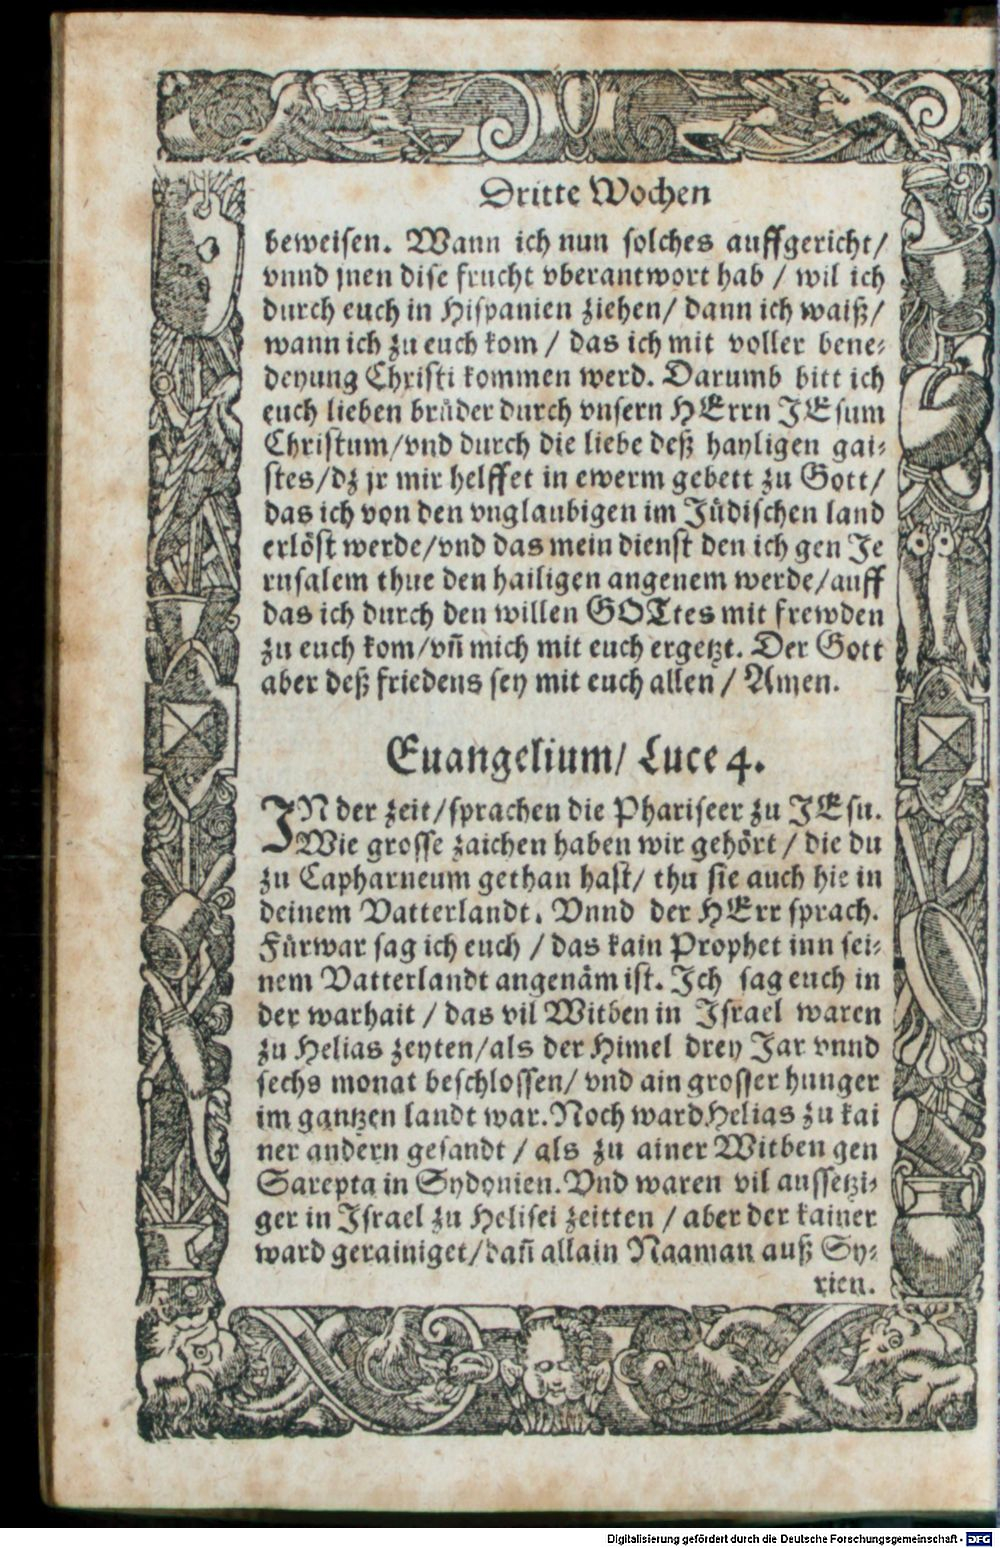 Dritte Wochen
beweisen. Wann ich nun solches auffgericht/
vnnd jnen dise frucht vberantwort hab / wil ich
durch euch in Hispanien ziehen/ dann ich waiß/
wann ich zu euch kom / das ich mit voller bene-
deyung Christi kommen werd. Darumb bitt ich
euch lieben brüder durch vnsern HErrn JEsum
Christum/vnd durch die liebe deß hayligen gai-
stes/dz jr mir helffet in ewerm gebett zu Gott/
das ich von den vnglaubigen im Jüdischen land
erlöst werde/vnd das mein dienst den ich gen Je
rusalem thue den hailigen angenem werde/auff
das ich durch den willen GOTtes mit frewden
zu euch kom/vñ mich mit euch ergetzt. Der Gott
aber deß friedens sey mit euch allen / Amen.
Euangelium/ Luce 4.
IN der zeit/sprachen die Phariseer zu JEsu.
Wie grosse zaichen haben wir gehört / die du
zu Capharneum gethan hast/ thu sie auch hie in
deinem Vatterlandt. Vnnd der HErr sprach.
Fürwar sag ich euch / das kain Prophet inn sei-
nem Vatterlandt angenäm ist. Ich sag euch in
der warhait / das vil Witben in Israel waren
zu Helias zeyten/als der Himel drey Jar vnnd
sechs monat beschlossen/ vnd ain grosser hunger
im gantzen landt war. Noch ward Helias zu kai
ner andern gesandt / als zu ainer Witben gen
Sarepta in Sydonien. Vnd waren vil aussetzi-
ger in Israel zu Helisei zeitten / aber der kainer
ward gerainiget/dañ allain Naaman auß Sy-
rien.
Digitalisierung gefördert durch die Deutsche Forschungsgemeinschaft - DFG